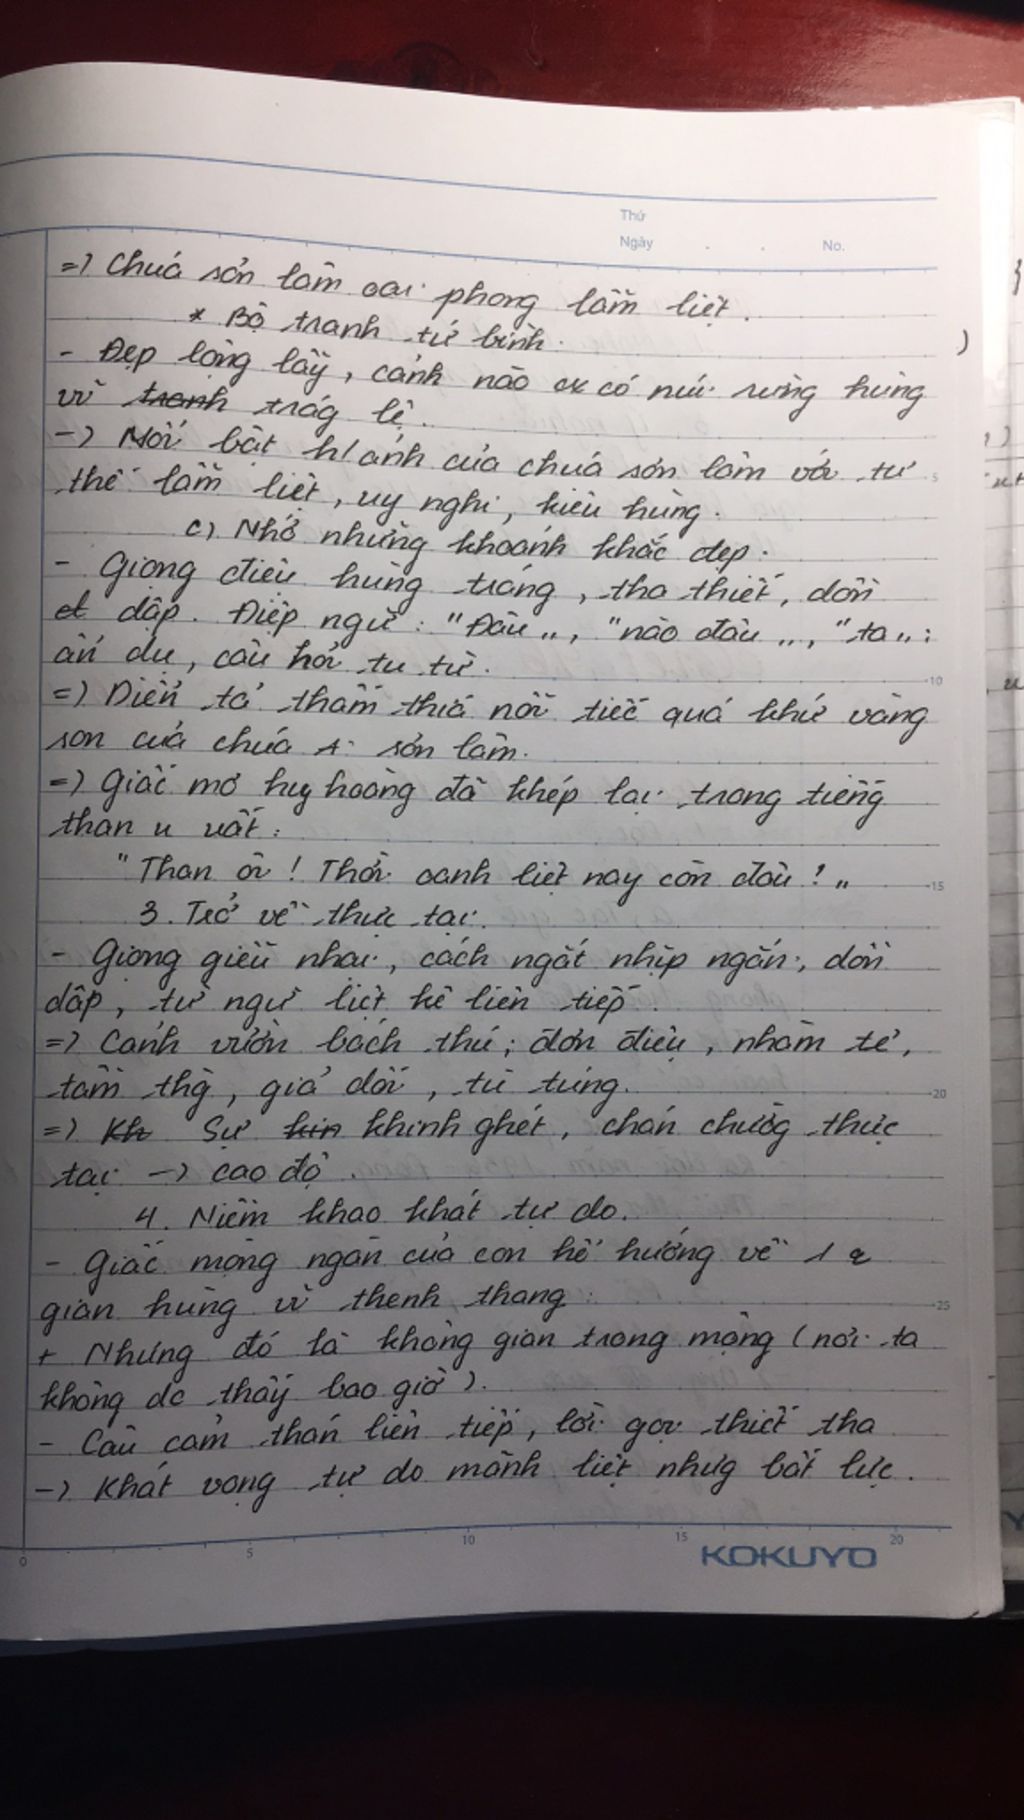 Thứ
Ngày . . No.
=) Chúa sơn lâm oai phong lẫm liệt.
* Bộ tranh tứ bình.
- Đẹp lộng lẫy, cảnh nào cx có núi rừng hùng
vĩ tranh trág lệ.
-) Nổi bật h/ảnh của chúa sơn lâm với tư
thế lẫm liệt, uy nghi, kiêu hùng.
c) Nhớ những khoảnh khắc đẹp.
- Giọng điệu hùng tráng, tha thiết, dồn
dập. Điệp ngữ: "Đâu", "nào đâu", "ta";
ẩn dụ, câu hỏi tu từ.
=) Diễn tả thấm thía nỗi tiếc quá khứ vàng
son của chúa sơn lâm.
=) Giấc mơ huy hoàng đã khép lại trong tiếng
than u uất:
"Than ôi! Thời oanh liệt nay còn đâu?"
3. Trở về thực tại.
- Giọng giễu nhại, cách ngắt nhịp ngắn, dồn
dập, từ ngữ liệt kê liên tiếp.
=) Cảnh vườn bách thú; đơn điệu, nhàm tẻ,
tầm thg`, giả dối, tù túng.
=) Kh Sự kin khinh ghét, chán chườg thực
tại -) cao độ.
4. Niềm khao khát tự do.
- Giấc mộng ngàn của con hổ hướng về 1 k
gian hùng vĩ thênh thang.
+ Nhưng đó là không gian trong mộng (nơi ta
không dc thấy bao giờ).
- Câu cảm thán liên tiếp, lời gọi thiết tha
-) Khát vọng tự do mãnh liệt nhưg bất lực.
5
10
15
20
25
0 5 10 15 20
KOKUYO